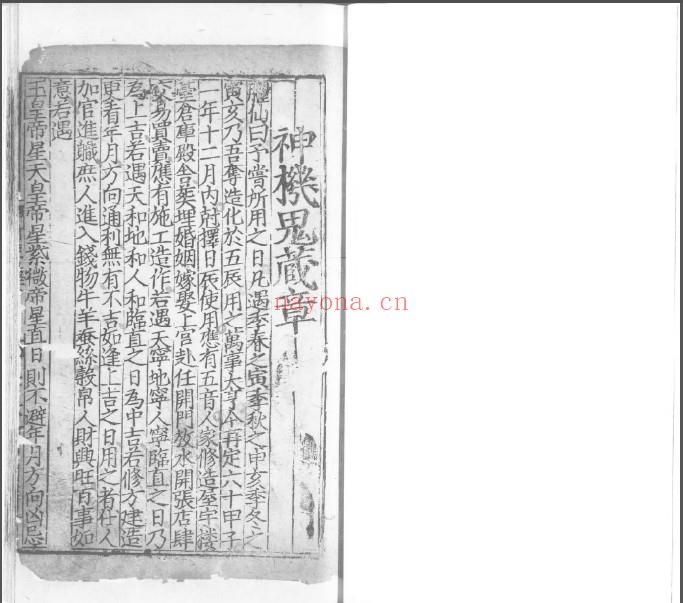 神機鬼藏章
臞仙曰予嘗所用之日凡遇季春之寅季秋之申亥季冬之
寅亥乃吾奪造化於五辰用之萬事大亨今再定六十甲子
一年十二月內時擇日辰使用應有五音人家修造屋宇樓
臺倉庫殿舍𦵏埋婚姻嫁娶上官赴任開門放水開張店肆
交易買賣應有施工造作若遇天寧地寧人寧臨直之日乃
為上吉若遇天和地和人和臨直之日為中吉若修方建造
更看年月方向通利無有不吉如逢上吉之日用之者仕人
加官進職庶人進入錢物牛羊蚕絲榖帛人財興旺百事如
意若遇
玉皇帝星天皇帝星紫微帝星直日則不避年月方向凶忌
nayona.cn